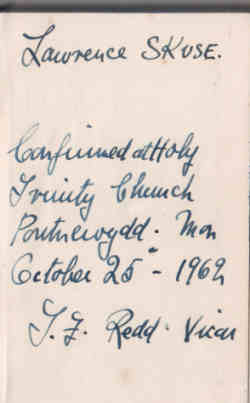 Lawrence SKUSE.
Confirmed at Holy
Trinity Church
Pontnewydd. Mon
October 25th - 1962
T. F. Redd. Vicar